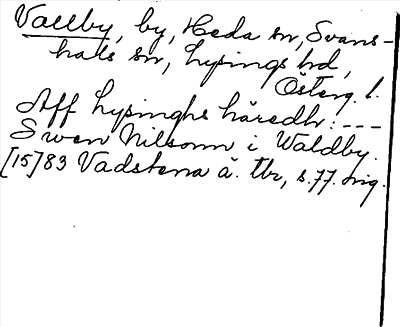 Vallby, by, Heda sn, Svans-
hals sn, Lysings hd,
Österg. l.
Aff Lysinghs häredh: ---
Swen Nilsonn i Waldby.
[15]83 Vadstena ä. tbr, s. 77. orig.